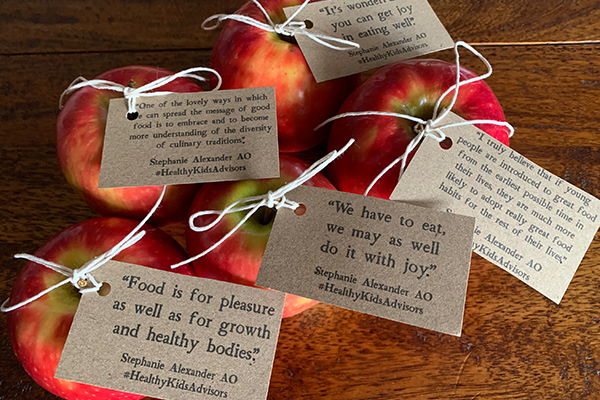 "It's wonderful
you can get joy
in eating well"
Stephanie Alexander AO
#HealthyKidsAdvisors
"One of the lovely ways in which
we can spread the message of good
food is to embrace and to become
more understanding of the diversity
of culinary traditions".
Stephanie Alexander AO
#HealthyKidsAdvisors
"I truly believe that if young
people are introduced to great food
from the earliest possible time in
their lives, they are much more
likely to adopt really great food
habits for the rest of their lives".
Alexander AO
HealthyKidsAdvisors
"We have to eat,
we may as well
do it with joy".
Stephanie Alexander AO
#HealthyKidsAdvisors
"Food is for pleasure
as well as for growth
and healthy bodies".
Stephanie Alexander AO
#HealthyKidsAdvisors